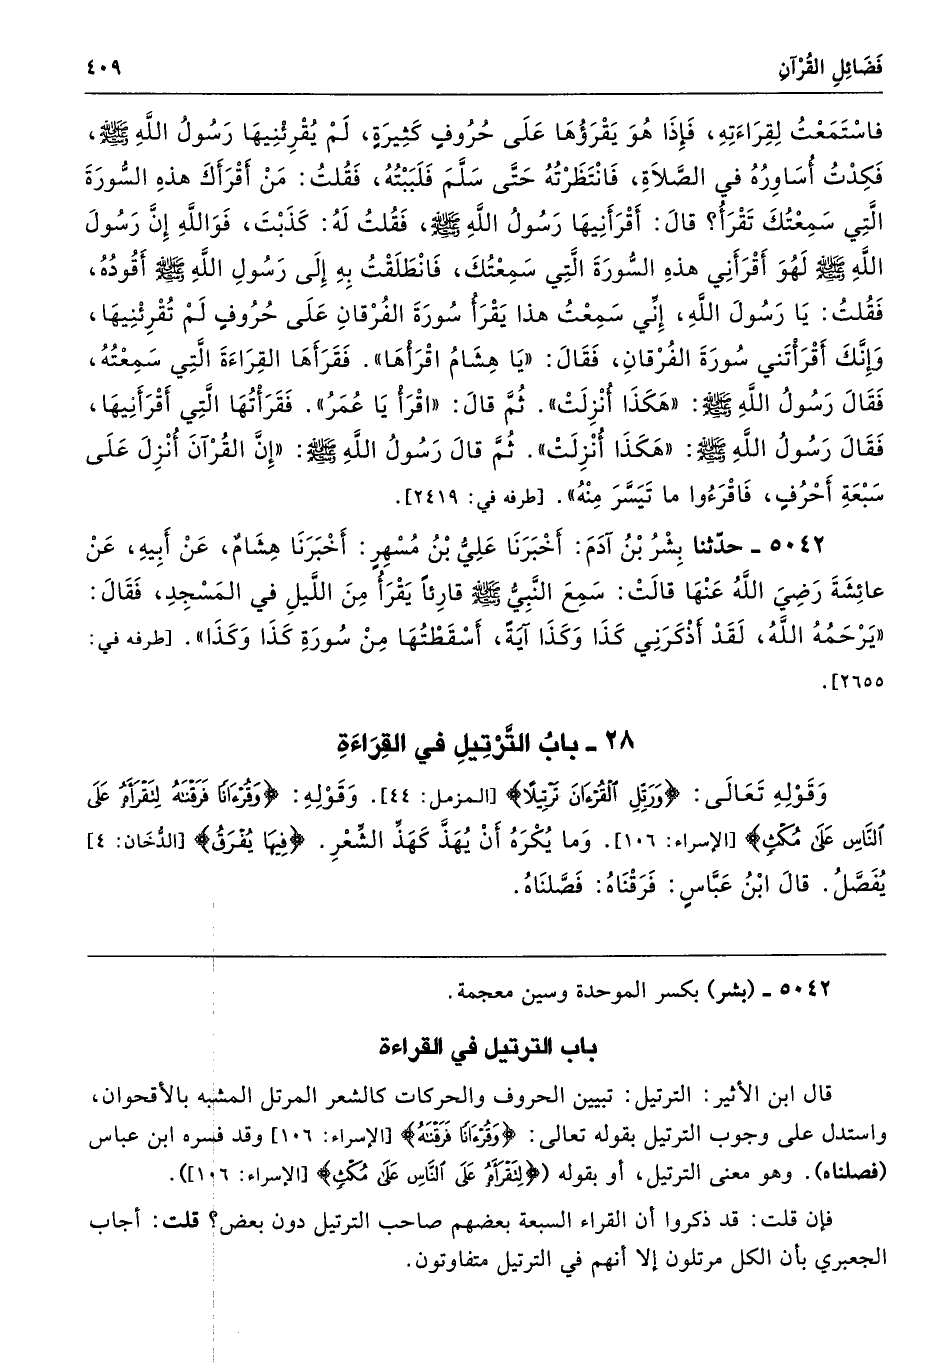 فَضَائِلِ القُرْآنِ ٤٠٩
فاسْتَمَعْتُ لِقِرَاءَتِهِ، فَإِذَا هُوَ يَقْرَؤُهَا عَلَى حُرُوفٍ كَثِيرَةٍ، لَمْ يُقْرِئْنِيهَا رَسُولُ اللَّهِ ﷺ،
فَكِدْتُ أُسَاوِرُهُ في الصَّلاَةِ، فَانْتَظَرْتُهُ حَتَّى سَلَّمَ فَلَبَبْتُهُ، فَقُلتُ: مَنْ أَقْرَأَكَ هذهِ السُّورَةَ
الَّتِي سَمِعْتُكَ تَقْرَأُ؟ قالَ: أَقْرَأَنِيهَا رَسُولُ اللَّهِ ﷺ، فَقُلتُ لَهُ: كَذَبْتَ، فَوَاللَّهِ إِنَّ رَسُولَ
اللَّهِ ﷺ لَهُوَ أَقْرَأَنِي هذهِ السُّورَةَ الَّتِي سَمِعْتُكَ، فَانْطَلَقْتُ بِهِ إِلَى رَسُولِ اللَّهِ ﷺ أَقُودُهُ،
فَقُلتُ: يَا رَسُولَ اللَّهِ، إِنِّي سَمِعْتُ هذا يَقْرَأُ سُورَةَ الفُرْقانِ عَلَى حُرُوفٍ لَمْ تُقْرِئْنِيهَا،
وَإِنَّكَ أَقْرَأْتَني سُورَةَ الفُرْقانِ، فَقَالَ: «يَا هِشَامُ اقْرَأْهَا». فَقَرَأَهَا القِرَاءَةَ الَّتِي سَمِعْتُهُ،
فَقَالَ رَسُولُ اللَّهِ ﷺ: «هَكَذَا أُنْزِلَتْ». ثُمَّ قالَ: «اقْرَأْ يَا عُمَرُ». فَقَرَأْتُهَا الَّتِي أَقْرَأَنِيهَا،
فَقَالَ رَسُولُ اللَّهِ ﷺ: «هَكَذَا أُنْزِلَتْ». ثُمَّ قالَ رَسُولُ اللَّهِ ﷺ: «إِنَّ القُرْآنَ أُنْزِلَ عَلَى
سَبْعَةِ أَحْرُفٍ، فَاقْرَءُوا ما تَيَسَّرَ مِنْهُ». [طرفه في: ٢٤١٩].
٥٠٤٢ ـ حدّثنا بِشْرُ بْنُ آدَمَ: أَخْبَرَنَا عَلِيُّ بْنُ مُسْهِرٍ: أَخْبَرَنَا هِشَامٌ، عَنْ أَبِيهِ، عَنْ
عائِشَةَ رَضِيَ اللَّهُ عَنْهَا قالَتْ: سَمِعَ النَّبِيُّ ﷺ قارِئاً يَقْرَأُ مِنَ اللَّيلِ في المَسْجِدِ، فَقَالَ:
«يَرْحَمُهُ اللَّهُ، لَقَدْ أَذْكَرَنِي كَذَا وَكَذَا آيَةً، أَسْقَطْتُهَا مِنْ سُورَةِ كَذَا وَكَذَا». [طرفه في:
٢٦٥٥].
٢٨ ـ بابُ التَّرْتِيلِ في القِرَاءَةِ
وَقَوْلِهِ تَعَالَى: ﴿وَرَتِّلِ ٱلْقُرْءَانَ تَرْتِيلًا﴾ [المزمل: ٤٤]. وَقَوْلِهِ: ﴿وَقُرْءَانًا فَرَقْنَٰهُ لِتَقْرَأَهُۥ عَلَى
ٱلنَّاسِ عَلَىٰ مُكْثٍ﴾ [الإسراء: ١٠٦]. وَما يُكْرَهُ أَنْ يُهَذَّ كَهَذِّ الشِّعْرِ. ﴿فِيهَا يُفْرَقُ﴾ [الدُّخان: ٤]
يُفَصَّلُ. قالَ ابْنُ عَبَّاسٍ: فَرَقْنَاهُ: فَصَّلنَاهُ.
٥٠٤٢ ـ (بشر) بكسر الموحدة وسين معجمة.
باب الترتيل في القراءة
قال ابن الأثير: الترتيل: تبيين الحروف والحركات كالشعر المرتل المشبه بالأقحوان،
واستدل على وجوب الترتيل بقوله تعالى: ﴿وَقُرْءَانًا فَرَقْنَٰهُ﴾ [الإسراء: ١٠٦] وقد فسره ابن عباس
(فصلناه). وهو معنى الترتيل، أو بقوله (﴿لِتَقْرَأَهُۥ عَلَى ٱلنَّاسِ عَلَىٰ مُكْثٍ﴾ [الإسراء: ١٠٦]).
فإن قلت: قد ذكروا أن القراء السبعة بعضهم صاحب الترتيل دون بعض؟ قلت: أجاب
الجعبري بأن الكل مرتلون إلا أنهم في الترتيل متفاوتون.